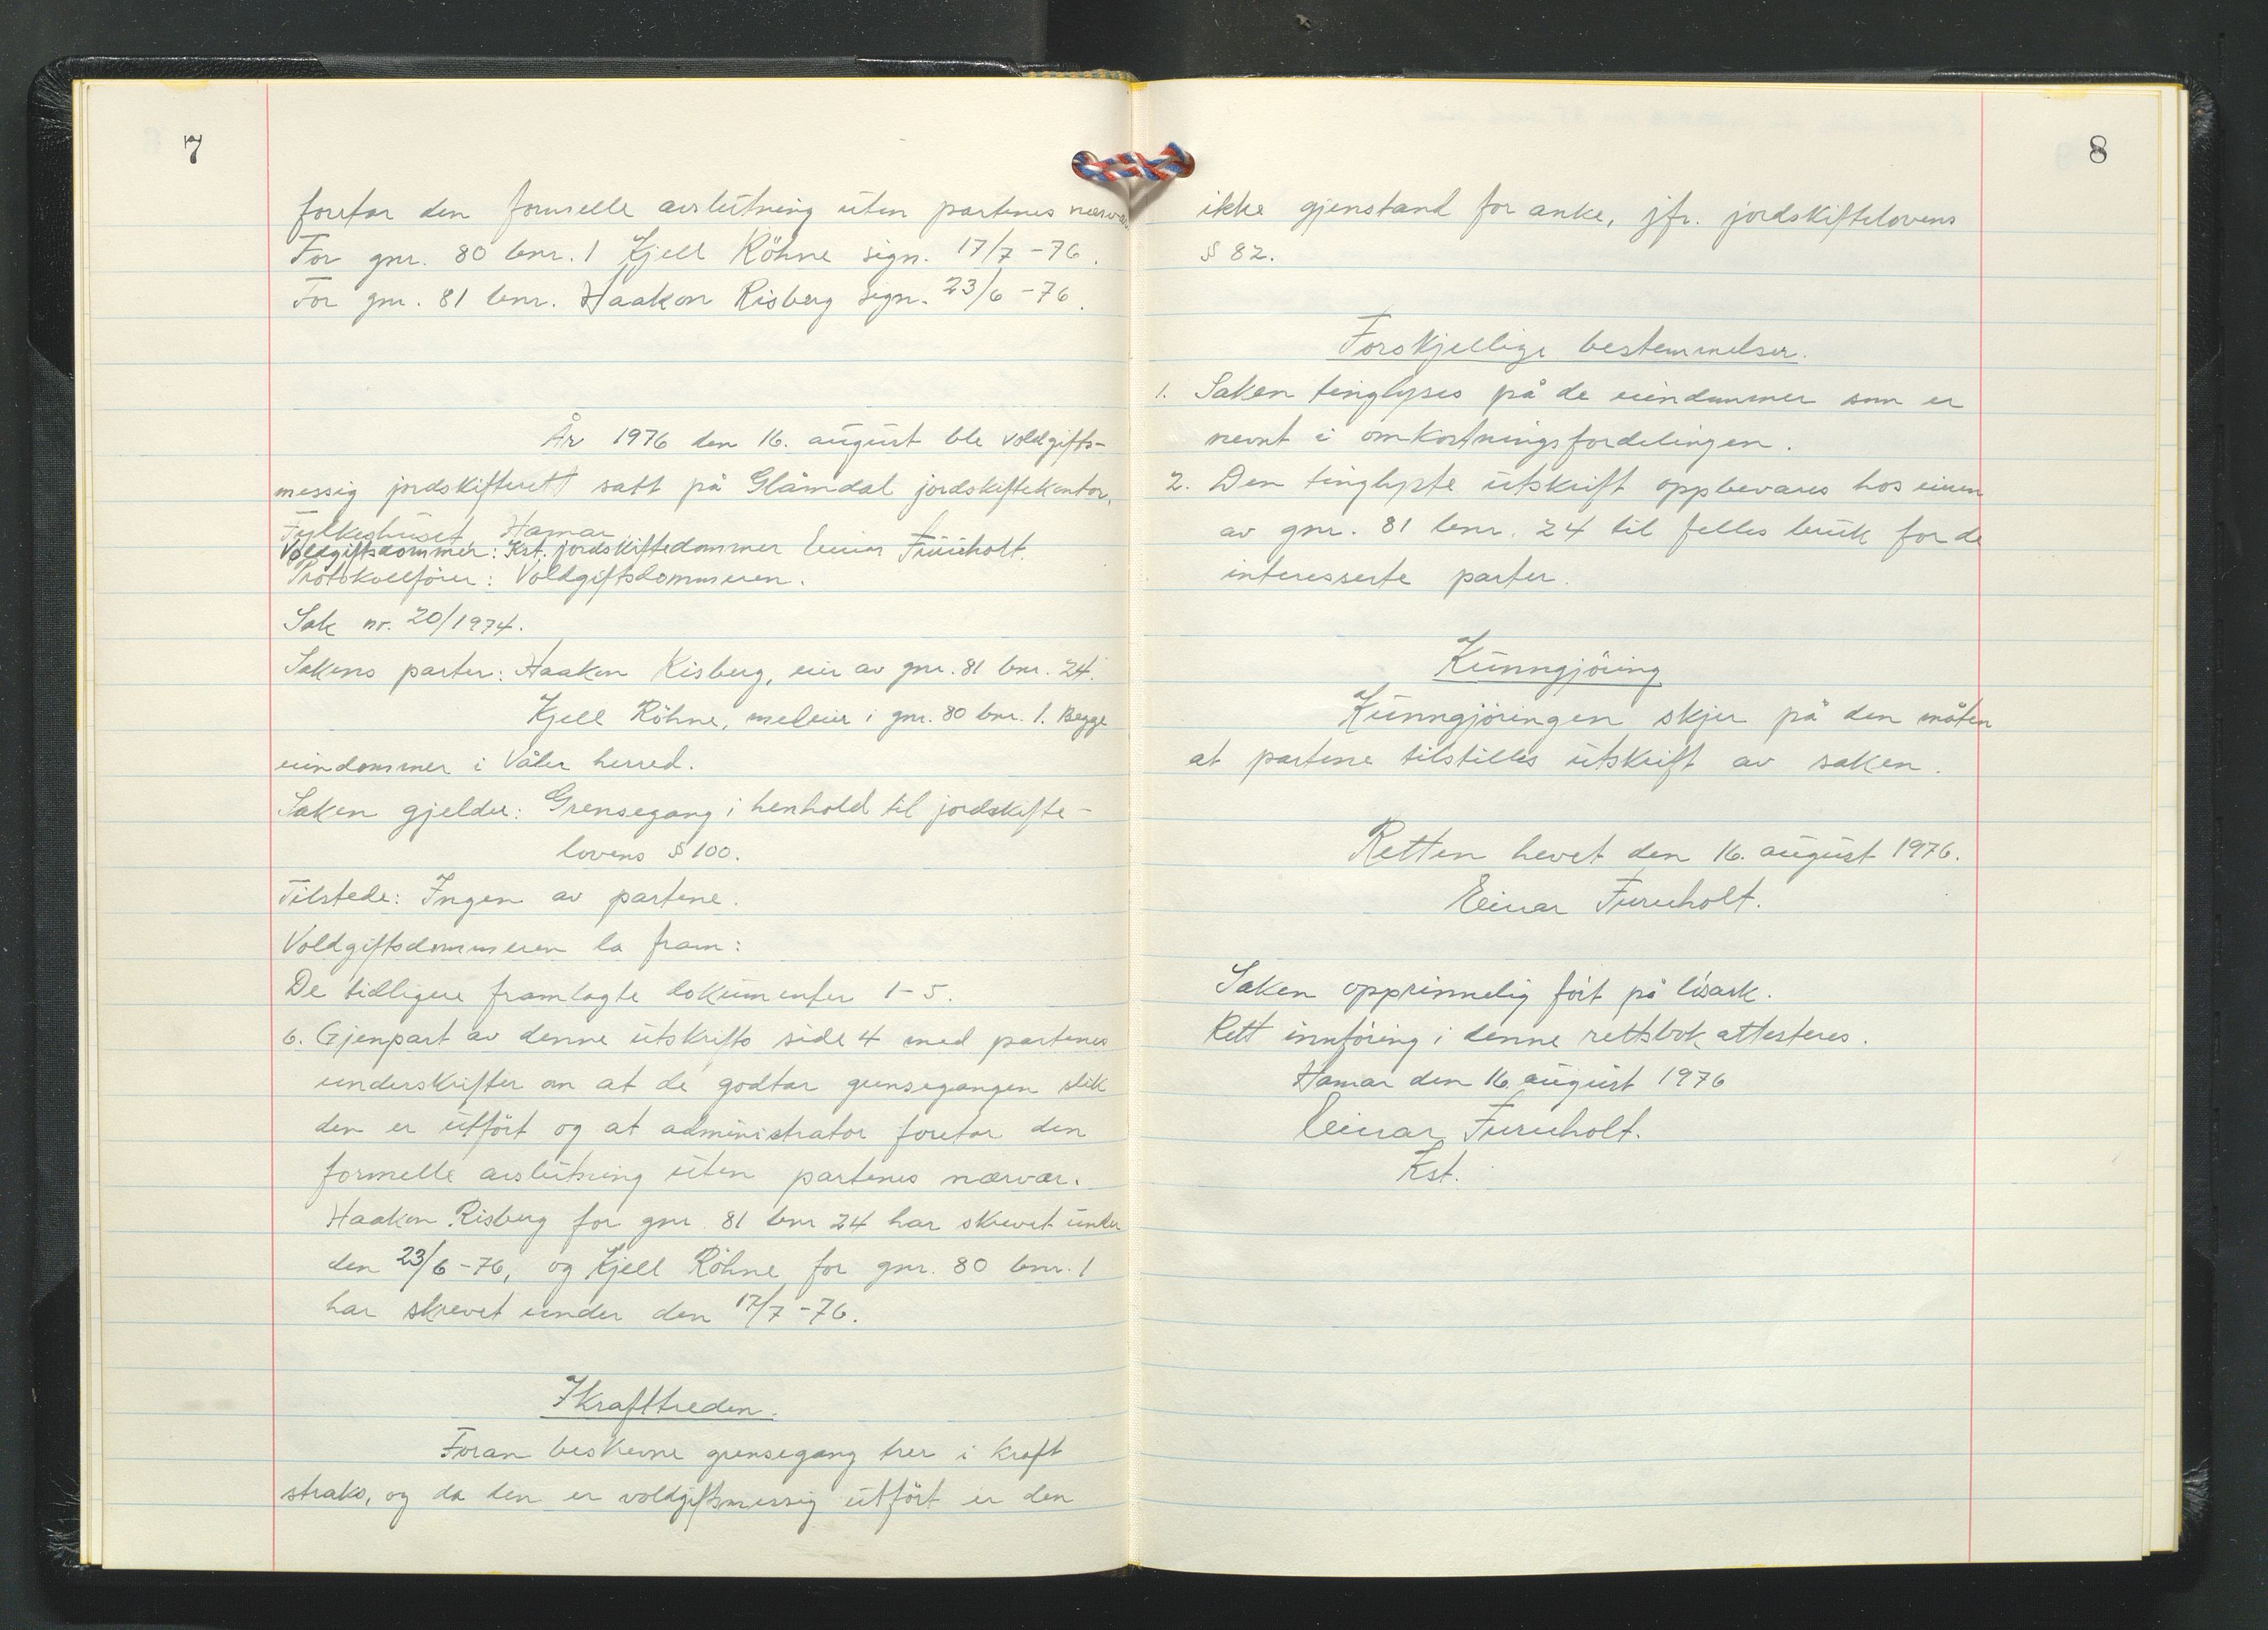 7
foretar den formelle avslutning uten partenes nærvær
For gnr. 80 bnr. 1 Kjell Röhne sign. 17/7 -76.
For gnr. 81 bnr. Haakon Risberg sign. 23/6 -76.
År 1976 den 16. august ble voldgifts-
messig jordskifterett satt på Glåmdal jordskiftekontor,
Fylkeshuset Hamar
Voldgiftsdommer: Kst. jordskiftedommer Einar Furuholt.
Protokollförer: Voldgiftsdommeren.
Sak nr. 20/1974.
Sakens parter: Haakon Risberg, eier av gnr. 81 bnr. 24.
Kjell Röhne, medeier i gnr. 80 bnr. 1. Begge
eiendommer i Våler herred.
Saken gjelder: Grensegang i henhold til jordskifte-
lovens § 100.
Tilstede: Ingen av partene.
Voldgiftsdommeren la fram:
De tidligere framlagte dokumenter 1-5.
6. Gjenpart av denne utskrifts side 4 med partenes
underskrifter om at de godtar grensegangen slik
den er utfört og at administrator foretar den
formelle avslutning uten partenes nærvær.
Haakon Risberg for gnr. 81 bnr 24 har skrevet under
den 23/6 -76, og Kjell Röhne for gnr. 80 bnr. 1
har skrevet under den 17/7 -76.
Ikrafttreden.
Foran beskrevne grensegang trer i kraft
straks, og da den er voldgiftsmessig utfört er den
8
ikke gjenstand for anke, jfr. jordskiftelovens
§ 82.
Forskjellige bestemmelser.
1. Saken tinglyses på de eiendommer som er
nevnt i omkostningsfordelingen.
2. Den tinglyste utskrift oppbevares hos eieren
av gnr. 81 bnr. 24 til felles bruk for de
interesserte parter.
Kunngjöring
Kunngjöringen skjer på den måten
at partene tilstilles utskrift av saken.
Retten hevet den 16. august 1976.
Einar Furuholt.
Saken opprinnelig fört på lösark.
Rett innföring i denne rettsbok attesteres.
Hamar den 16. august 1976
Einar Furuholt.
Kst.